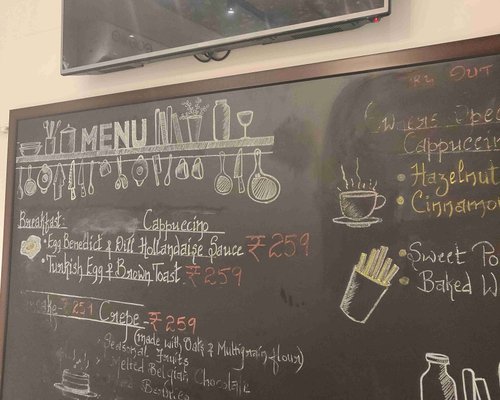 MENU
Breakfast: Cappuccino
• Egg Benedict & Dill Hollandaise Sauce ₹259
• Turkish Egg & Brown Toast ₹259
₹259 Crepe - ₹259
(made with Oats & Multigrain flour)
• Seasonal Fruits
• Melted Belgian Chocolate
Berries
OUT
Cappuccin
• Hazelnut
• Cinnamo
• Sweet Po
Baked W